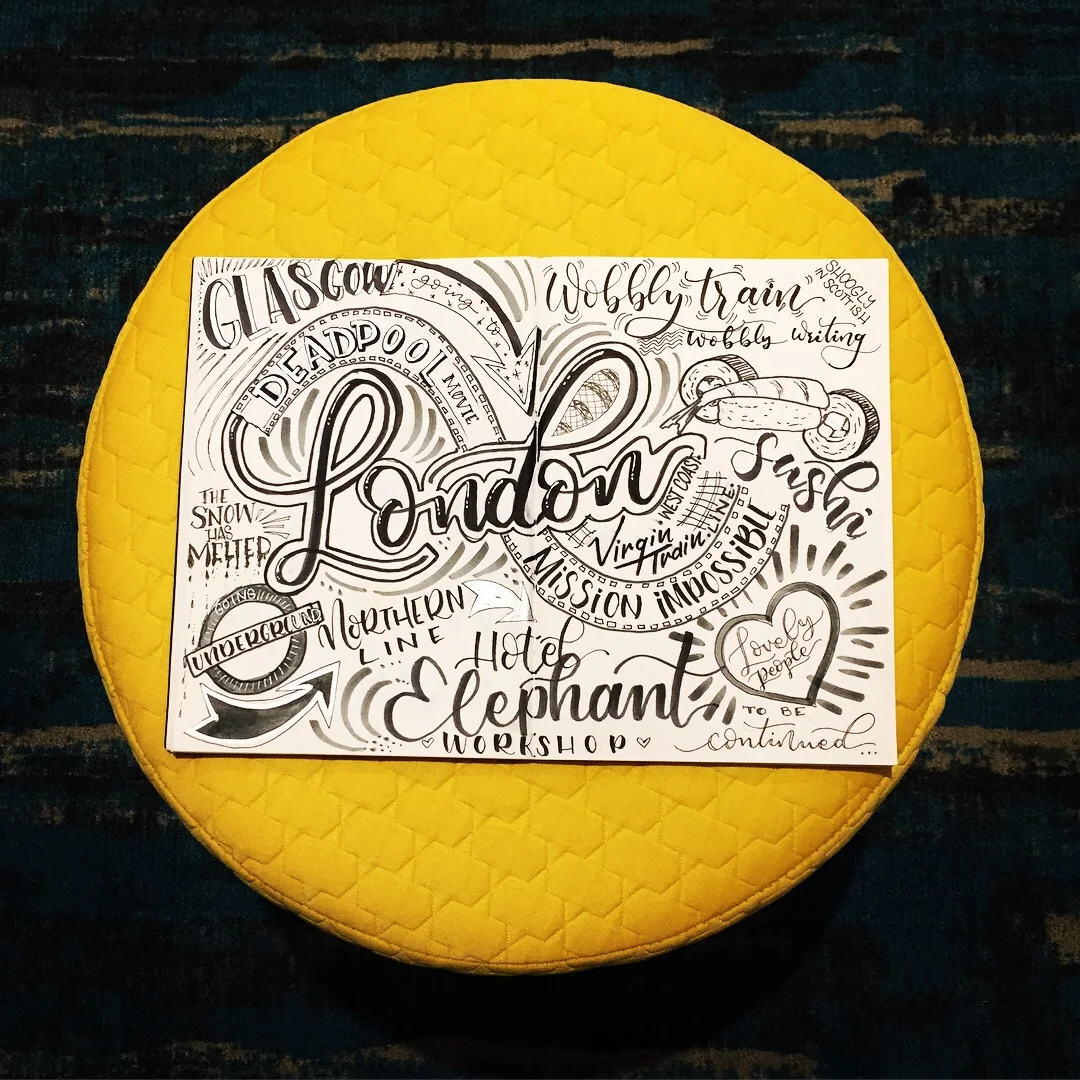 GLASGOW
going to
DEADPOOL
MOVIE
London
THE
SNOW
HAS
MELTED
GOING
UNDERGROUND
NORTHERN
LINE
Wobbly train
SHOOGLY
IN SCOTTISH
wobbly writing
Sushi
WEST COAST
LINE
Virgin
Train
MISSION IMPOSSIBLE
Hotel
Elephant
WORKSHOP
Lovely
people
TO BE
continued...